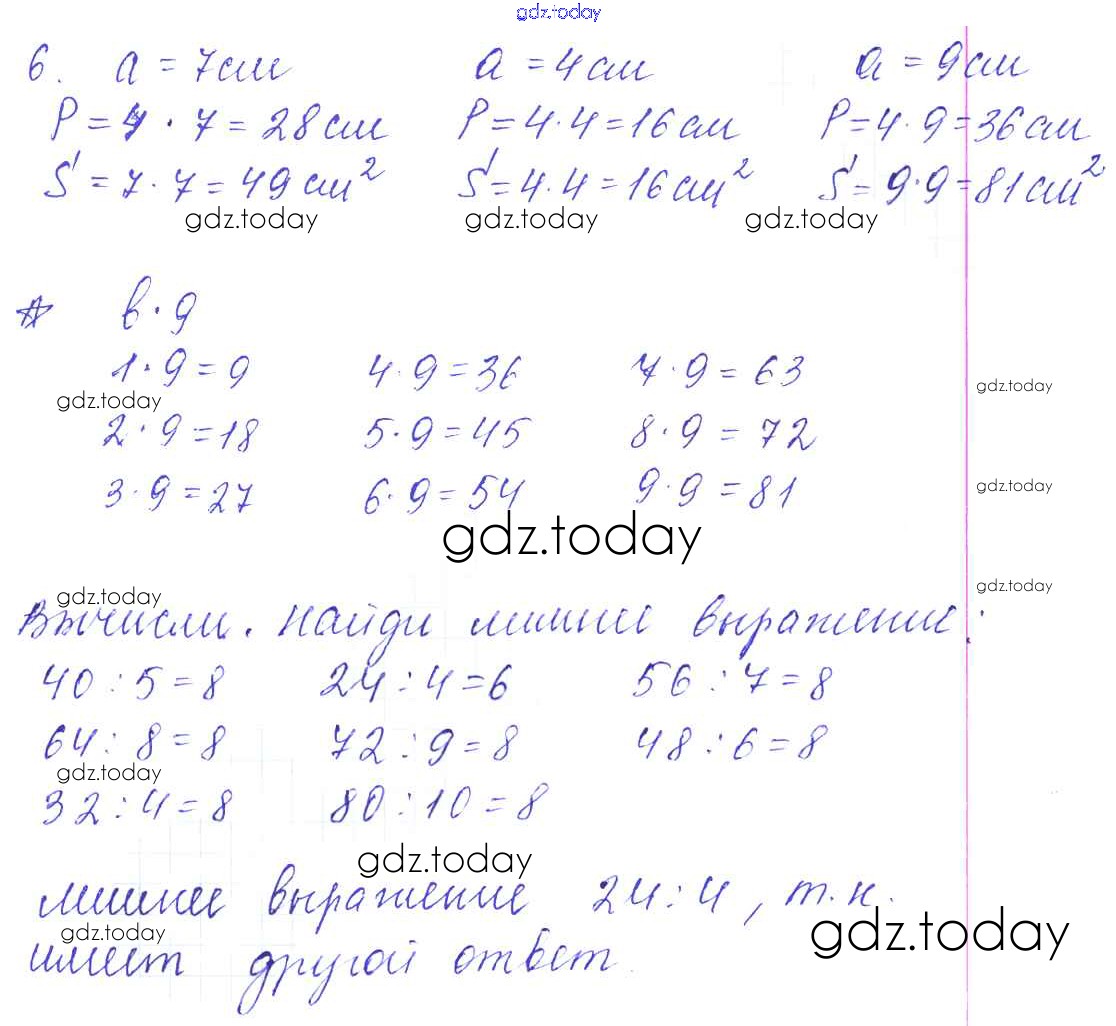 gdz.today
6. a = 7см a = 4см a = 9см
P = 4 · 7 = 28см P = 4 · 4 = 16см P = 4 · 9 = 36см
S = 7 · 7 = 49см² S = 4 · 4 = 16см² S = 9 · 9 = 81см²
gdz.today gdz.today gdz.today
в · 9
1 · 9 = 9 4 · 9 = 36 7 · 9 = 63
gdz.today gdz.today
2 · 9 = 18 5 · 9 = 45 8 · 9 = 72
3 · 9 = 27 6 · 9 = 54 9 · 9 = 81
gdz.today
gdz.today
gdz.today gdz.today
Вычисли. Найди лишнее выражение:
40 : 5 = 8 24 : 4 = 6 56 : 7 = 8
64 : 8 = 8 72 : 9 = 8 48 : 6 = 8
gdz.today
32 : 4 = 8 80 : 10 = 8
gdz.today
лишнее выражение 24 : 4, т.к.
gdz.today gdz.today
имеет другой ответ.